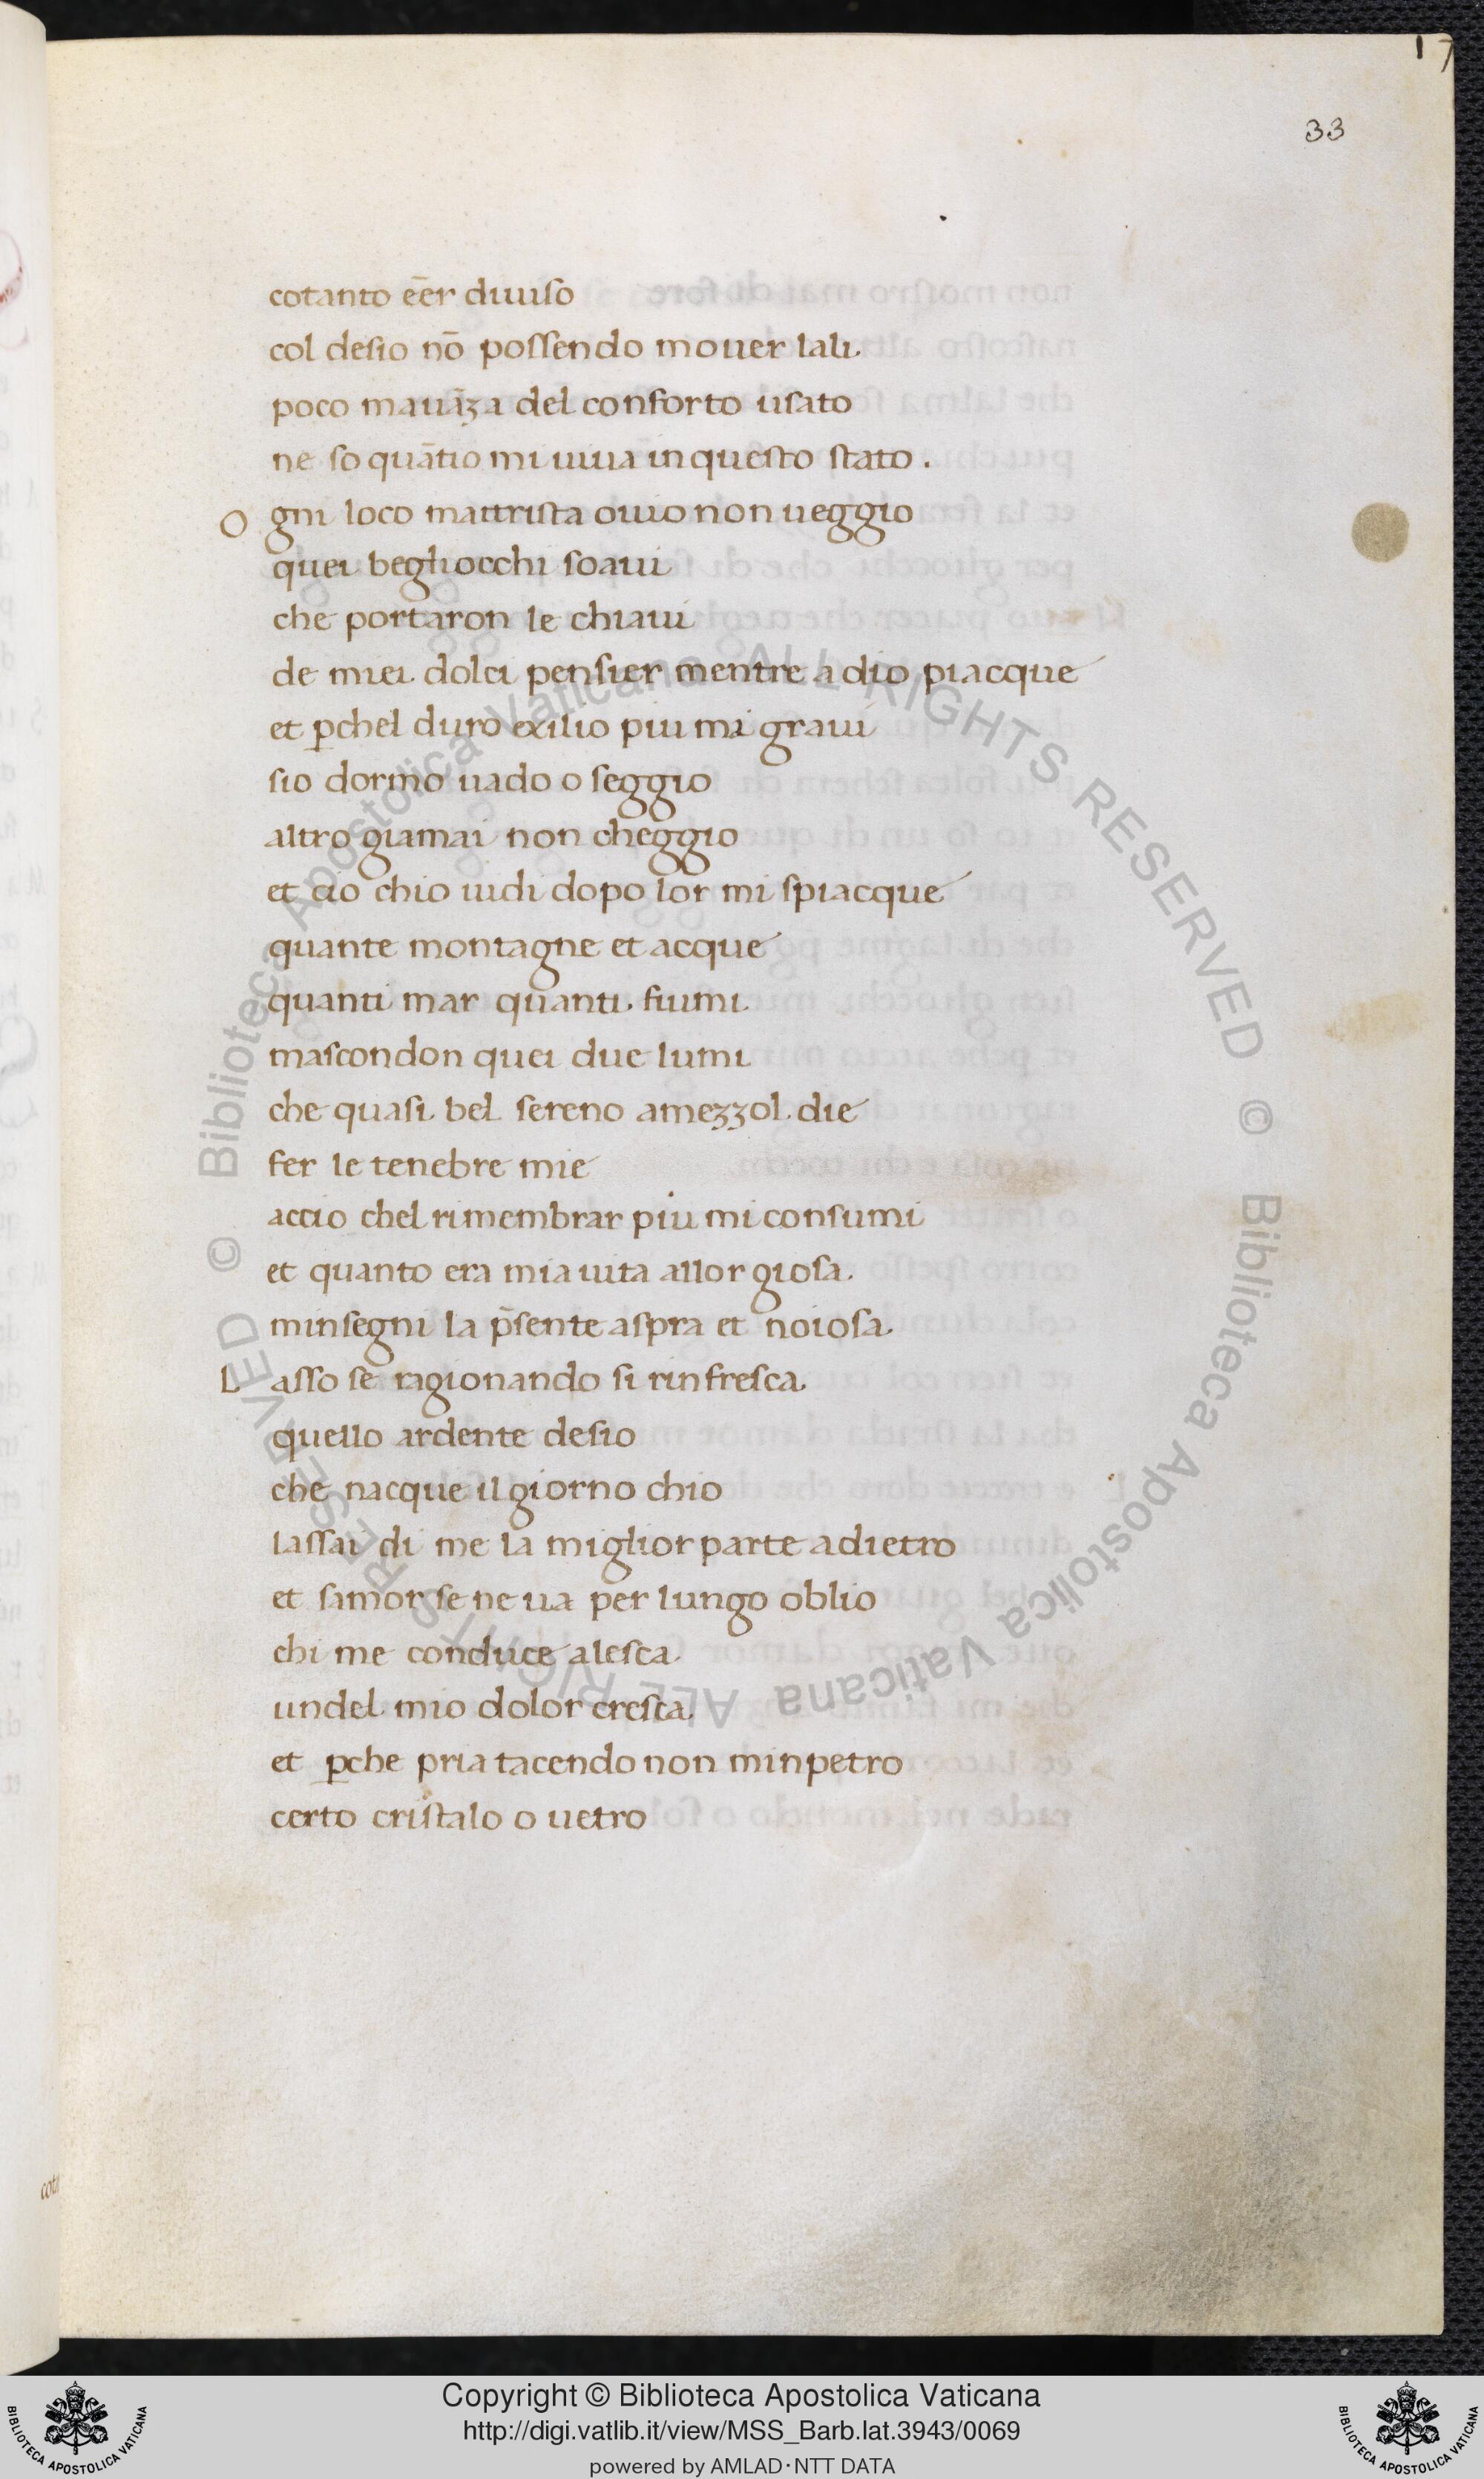 17
33
cotanto eēr diuiso
col desio nō possendo mouer lali
poco mauāza del conforto usato
ne so quātio mi uiua in questo stato .
O gni loco mattrista ouio non ueggio
quei begliocchi soaui
che portaron le chiaui
de miei dolci pensier mentre a dio piacque
et p̱chel duro exilio piu mi graui
sio dormo uado o seggio
altro giamai non cheggio
et cio chio uidi dopo lor mi spiacque
quante montagne et acque
quanti mar quanti fiumi
mascondon quei due lumi
che quasi bel sereno amezzol die
fer le tenebre mie
accio chel rimembrar piu mi consumi
et quanto era mia uita allor giosa
minsegni la p̄sente aspra et noiosa
L asso se ragionando si rinfresca
quello ardente desio
che nacque il giorno chio
lassai di me la miglior parte adietro
et samor se ne ua per lungo oblio
chi me conduce alesca
undel mio dolor cresca
et p̱che pria tacendo non minpetro
certo cristalo o uetro
© Biblioteca Apostolica Vaticana ALL RIGHTS RESERVED © Biblioteca Apostolica Vaticana ALL RIGHTS RESERVED
BIBLIOTECA APOSTOLICA VATICANA
Copyright © Biblioteca Apostolica Vaticana
http://digi.vatlib.it/view/MSS_Barb.lat.3943/0069
powered by AMLAD·NTT DATA
BIBLIOTECA APOSTOLICA VATICANA